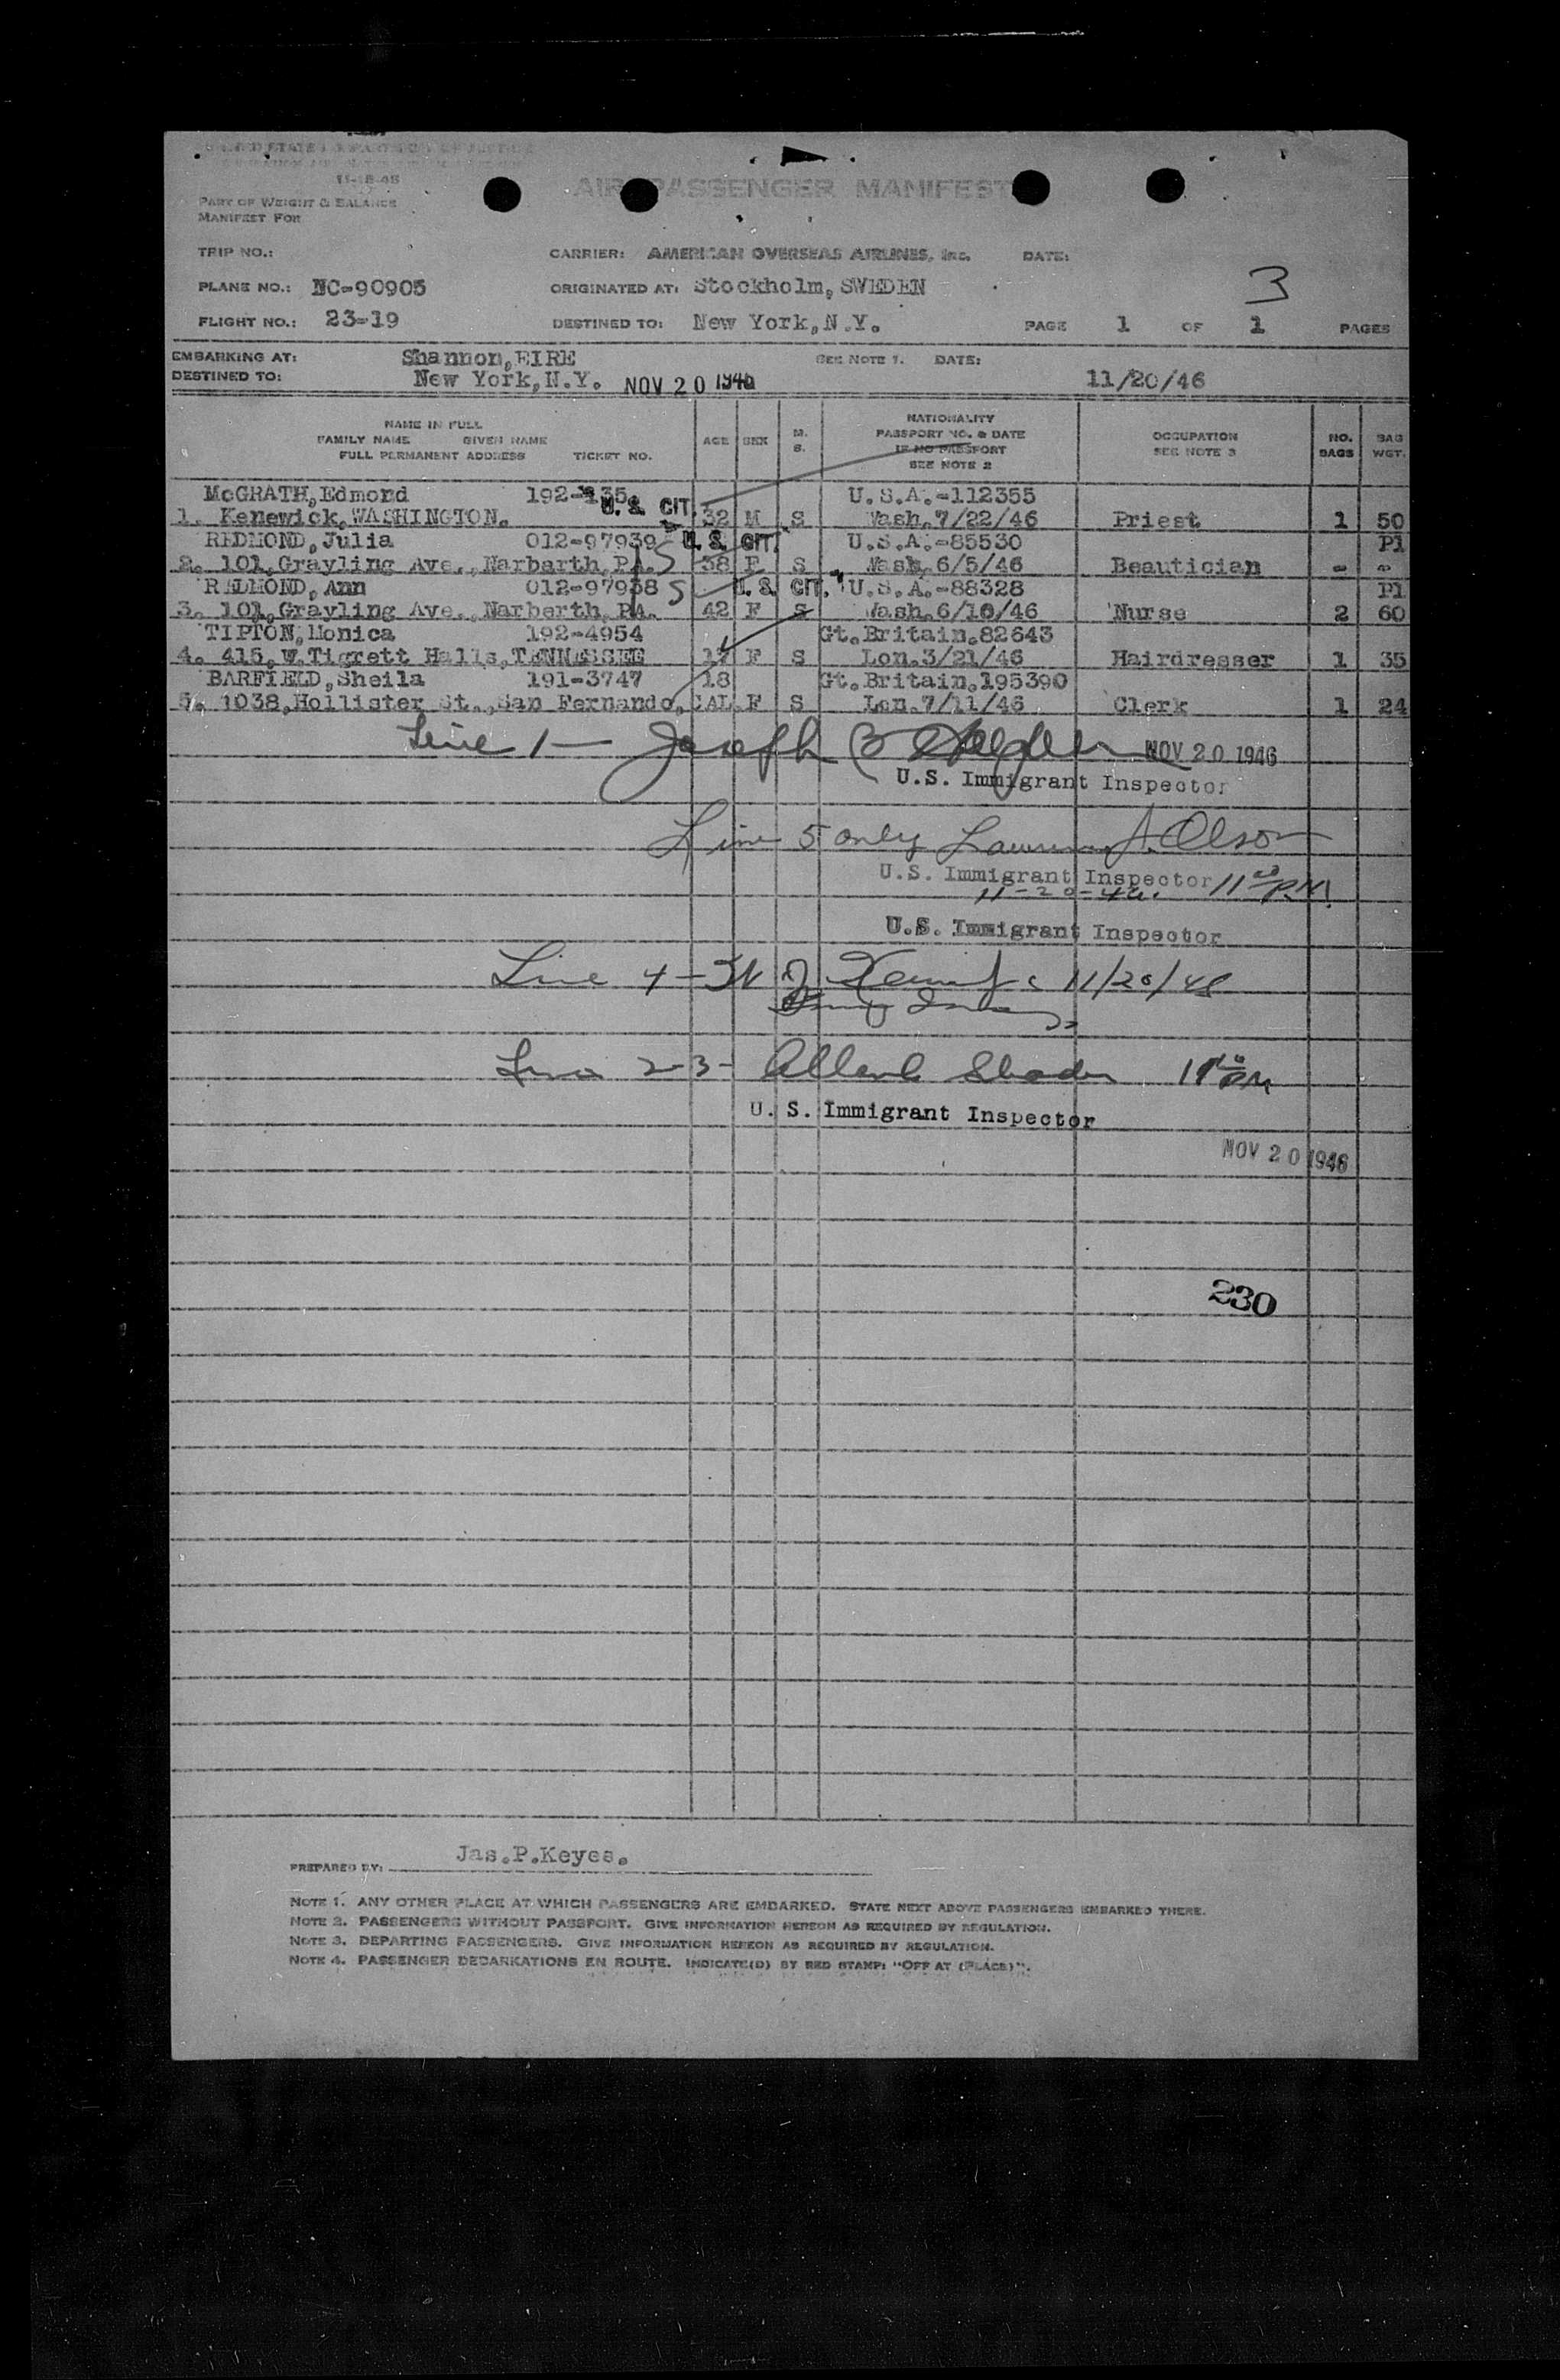 UNITED STATES DEPARTMENT OF JUSTICE
11-18-46
AIR PASSENGER MANIFEST
PART OF WEIGHT & BALANCE
MANIFEST FOR
TRIP NO.: CARRIER: AMERICAN OVERSEAS AIRLINES, Inc. DATE:
PLANE NO.: NC-90905 ORIGINATED AT: Stockholm, SWEDEN 3
FLIGHT NO.: 23-19 DESTINED TO: New York, N.Y. PAGE 1 OF 1 PAGES
EMBARKING AT: Shannon, EIRE SEE NOTE 1. DATE:
DESTINED TO: New York, N.Y. NOV 20 1946 11/20/46
NAME IN FULL
FAMILY NAME GIVEN NAME
FULL PERMANENT ADDRESS TICKET NO.
AGE SEX M. S.
NATIONALITY
PASSPORT NO. & DATE
IF NO PASSPORT
SEE NOTE 2
OCCUPATION
SEE NOTE 3
NO. BAGS
BAG WGT.
McGRATH, Edmond 192-135 U. S. CIT. U.S.A.-112355
1. Kenewick, WASHINGTON. 32 M S Wash. 7/22/46 Priest 1 50
REDMOND, Julia 012-97939 U. S. CIT. U.S.A.-85530 Pl
2. 101, Grayling Ave., Narbarth, PA. 5 38 F S Wash. 6/5/46 Beautician - -
REDMOND, Ann 012-97938 5 U. S. CIT. U.S.A.-88328 Pl
3. 101, Grayling Ave., Narberth, PA. 42 F S Wash. 6/10/46 Nurse 2 60
TIPTON, Monica 192-4954 Gt. Britain. 82643
4. 415, W. Tigrett Halls, TENNESSEE 17 F S Lon. 3/21/46 Hairdresser 1 35
BARFIELD, Sheila 191-3747 18 Gt. Britain. 195390
5. 1038, Hollister St., San Fernando, CAL. F S Lon. 7/11/46 Clerk 1 24
Line 1- Joseph NOV 20 1946
U.S. Immigrant Inspector
Line 5 only A. Olson
U.S. Immigrant Inspector 11 00 PM
11-20-46.
U.S. Immigrant Inspector
Line 4 - 11/20/46
Line 2-3- PM
U. S. Immigrant Inspector
NOV 20 1946
230
PREPARED BY: Jas.P.Keyes.
NOTE 1. ANY OTHER PLACE AT WHICH PASSENGERS ARE EMBARKED. STATE NEXT ABOVE PASSENGERS EMBARKED THERE.
NOTE 2. PASSENGERS WITHOUT PASSPORT. GIVE INFORMATION HEREON AS REQUIRED BY REGULATION.
NOTE 3. DEPARTING PASSENGERS. GIVE INFORMATION HEREON AS REQUIRED BY REGULATION.
NOTE 4. PASSENGER DEBARKATIONS EN ROUTE. INDICATE(D) BY RED STAMP: "OFF AT (PLACE)".